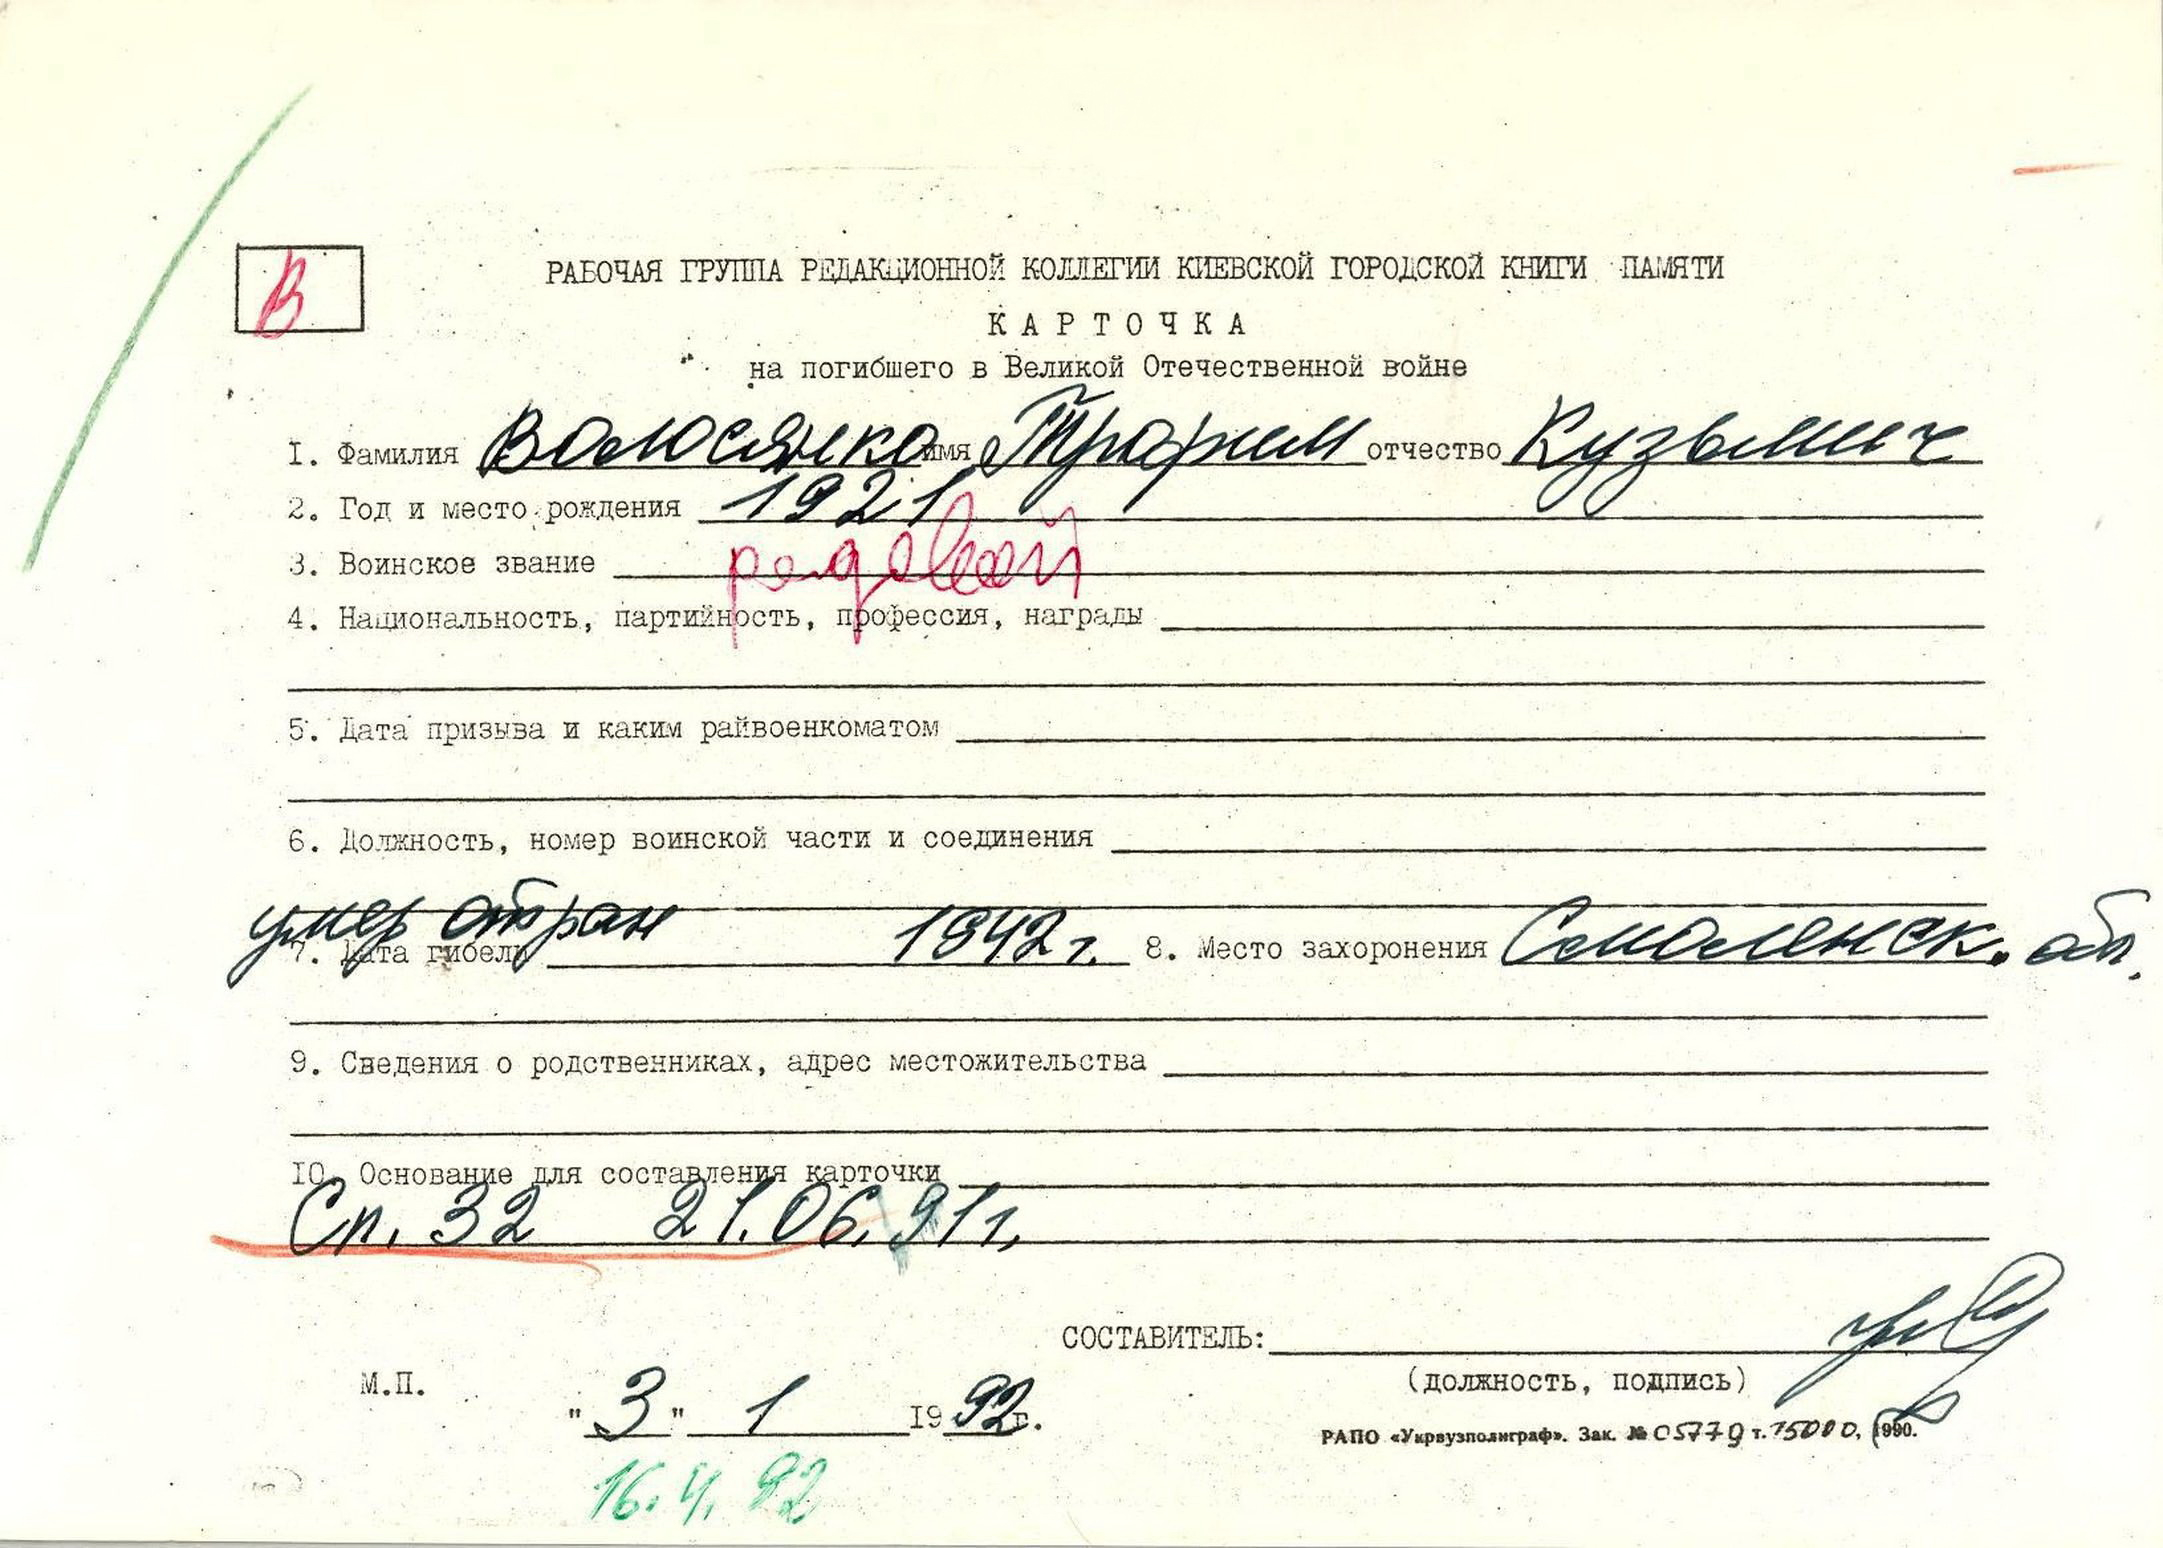 В
РАБОЧАЯ ГРУППА РЕДАКЦИОННОЙ КОЛЛЕГИИ КИЕВСКОЙ ГОРОДСКОЙ КНИГИ ПАМЯТИ
КАРТОЧКА
на погибшего в Великой Отечественной войне
1. Фамилия Волосянко имя Трофим отчество Кузьмич
2. Год и место рождения 1921
3. Воинское звание рядовой
4. Национальность, партийность, профессия, награды
5. Дата призыва и каким райвоенкоматом
6. Должность, номер воинской части и соединения
умер от ран
7. Дата гибели 1942 г. 8. Место захоронения Смоленск. обл.
9. Сведения о родственниках, адрес местожительства
10. Основание для составления карточки
Сп. 32 21.06.91 г.
СОСТАВИТЕЛЬ:
М.П. (ДОЛЖНОСТЬ, ПОДПИСЬ)
"3" 1 1992 г.
РАПО «Укрвузполиграф». Зак. № 05779 т. 15000, 1990.
16.4.92